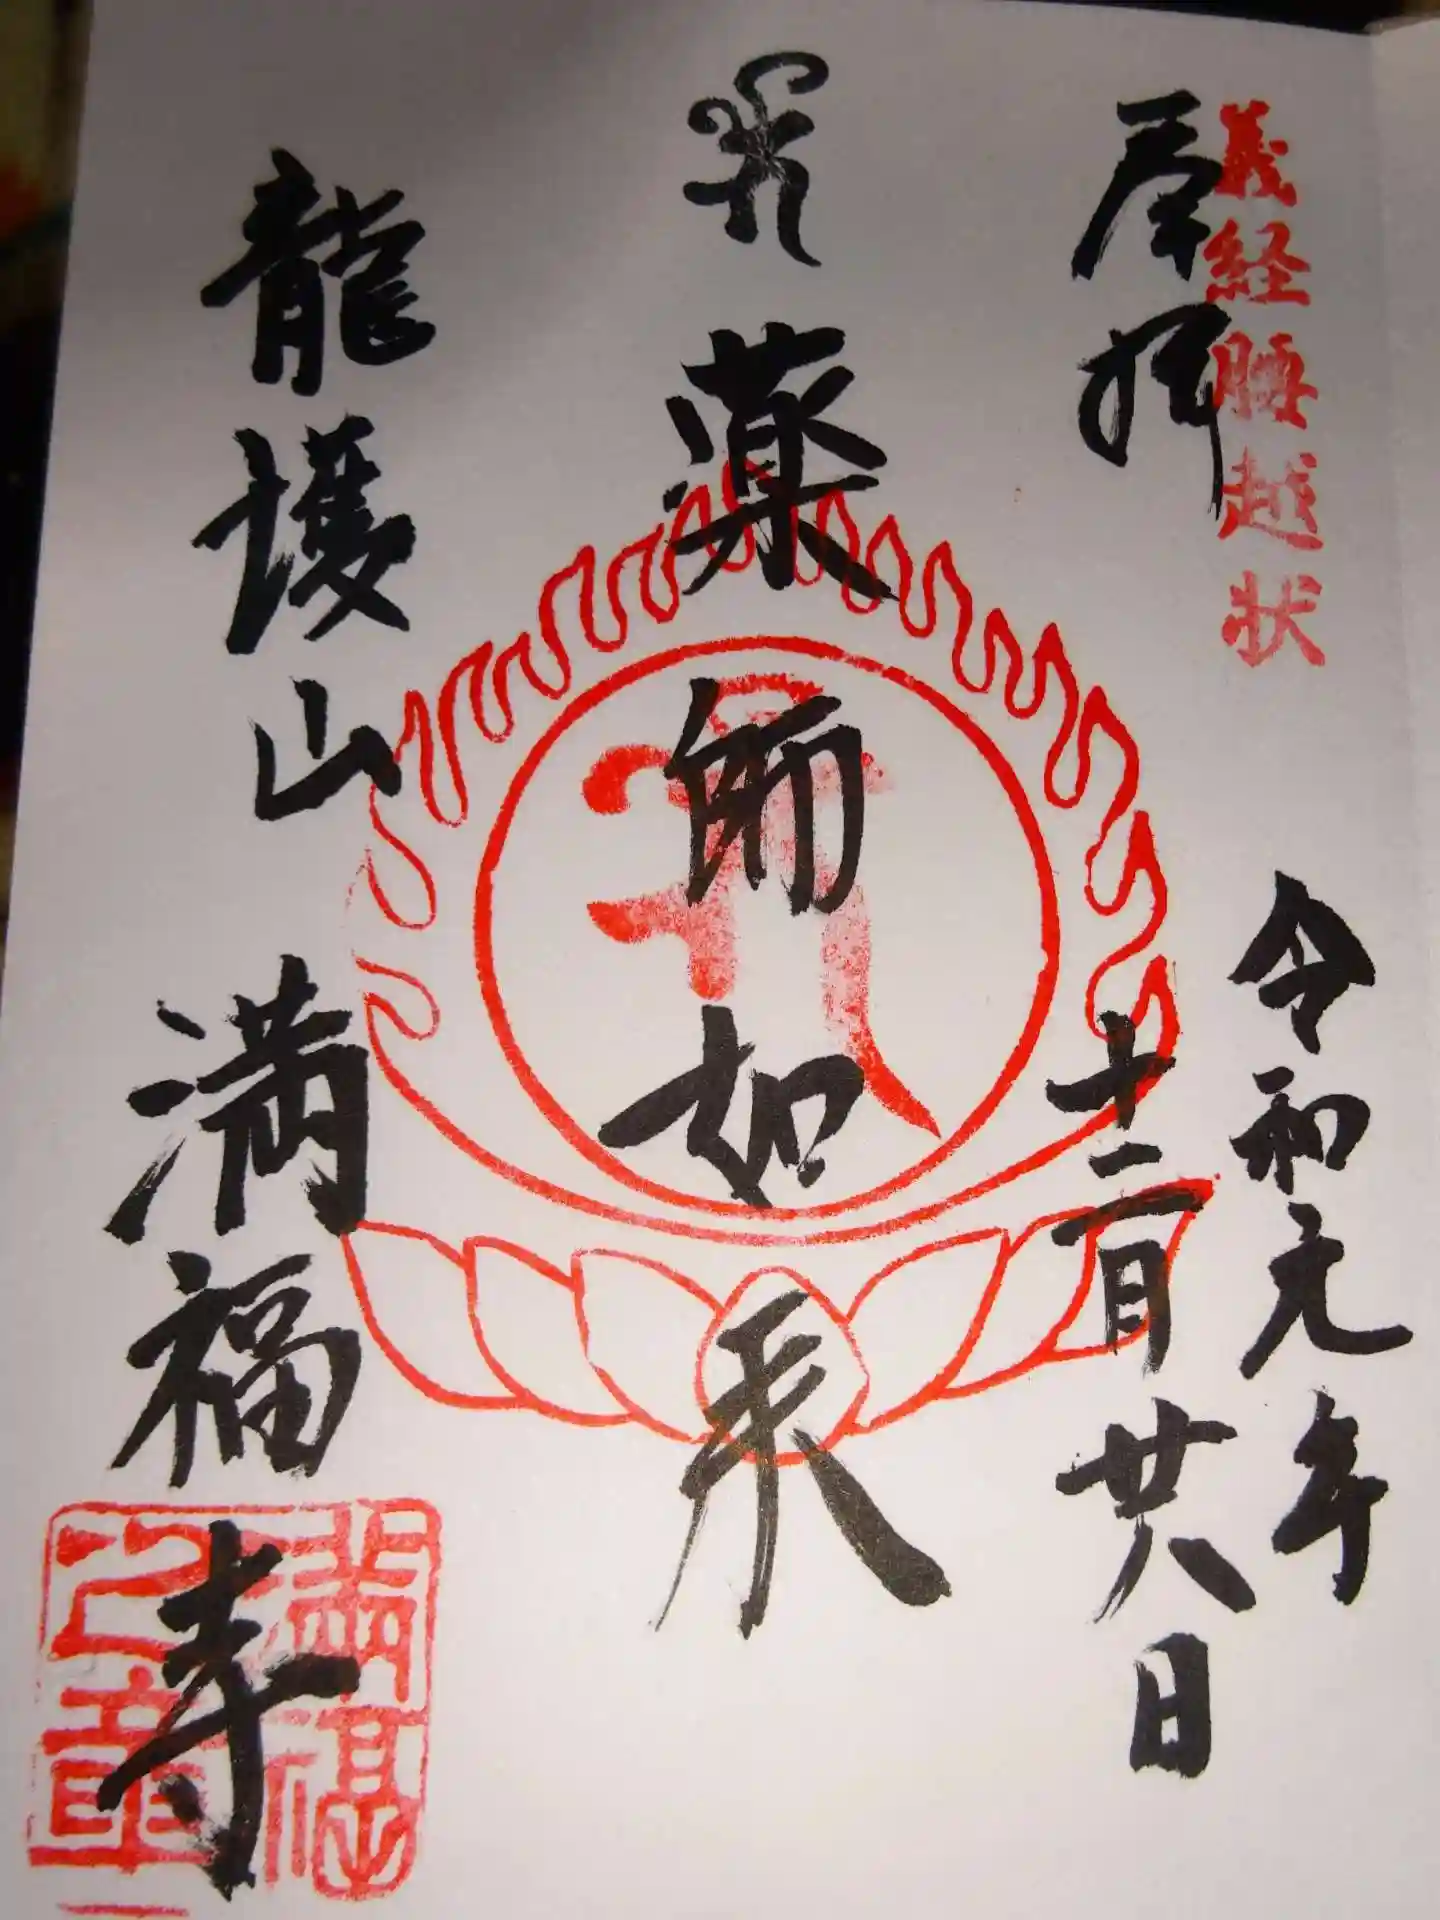 義経腰越状
奉拝
令和元年
十二月廿八日
薬師如来
龍護山
満福寺